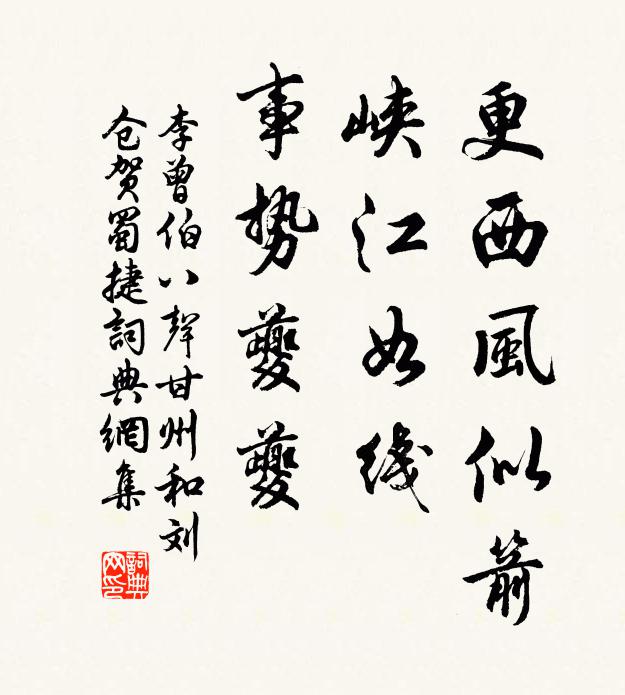 更西風似箭
峽江如綫
事势夔夔
李曾伯八聲甘州和刘
仓贺蜀捷詞典網集
詞典网印